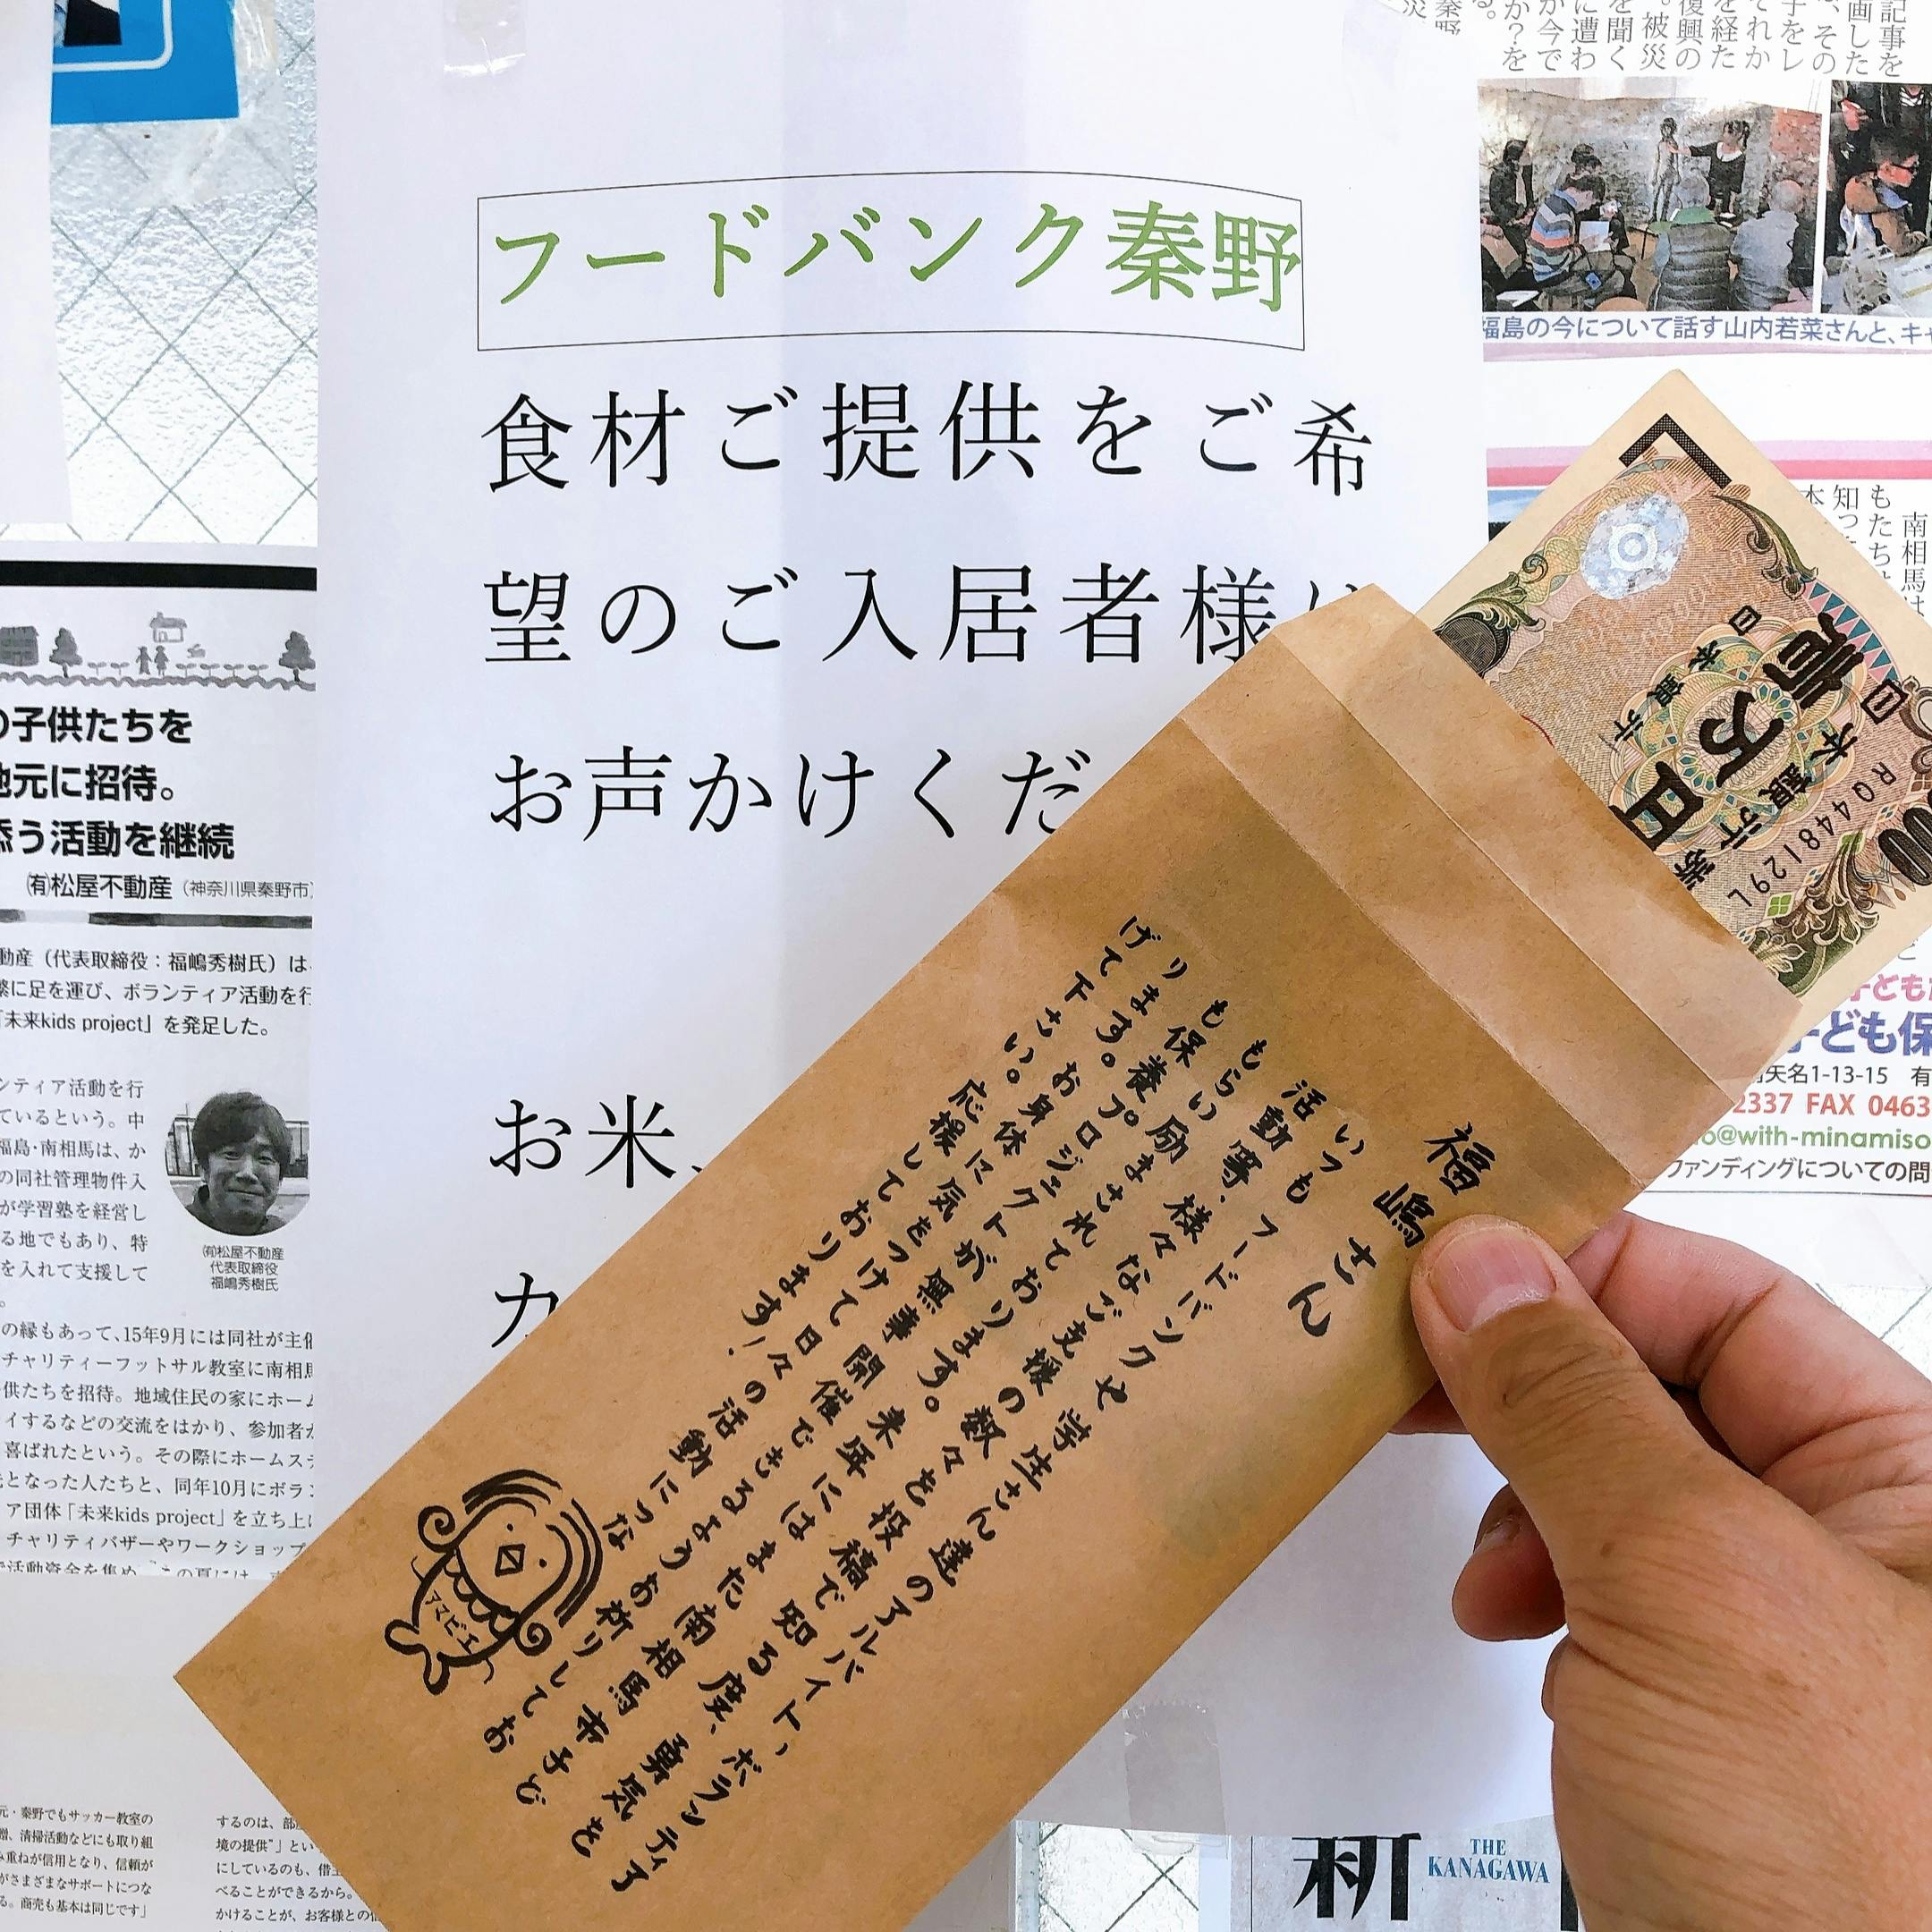 フードバンク秦野
食材ご提供をご希
望のご入居者様
お声かけくだ
お米
カ
福嶋さん
いつもフードバンクや学生さん達のアルバイト、ボランティア
活動等、様々なご支援の数々を投稿で知る度、勇気を
もらい励まされております。来年にはまた南相馬市子ど
も保養プロジェクトが無事開催できるようお祈りしてお
ります。お身体に気をつけて日々の活動につな
げて下さい。応援しております!
アマビエ
日本銀行券
壱万円
日本銀行
RQ448129L
の子供たちを
地元に招待。
添う活動を継続
㈲松屋不動産（神奈川県秦野市）
動産（代表取締役：福嶋秀樹氏）は、
繁に足を運び、ボランティア活動を行
「未来kids project」を発足した。
ンティア活動を行
ているという。中
福島・南相馬は、か
の同社管理物件入
が学習塾を経営し
る地でもあり、特
を入れて支援して
㈲松屋不動産
代表取締役
福嶋秀樹氏
の縁もあって、15年9月には同社が主催
チャリティーフットサル教室に南相馬
供たちを招待。地域住民の家にホーム
イするなどの交流をはかり、参加者か
喜ばれたという。その際にホームステ
元となった人たちと、同年10月にボラン
ア団体「未来kids project」を立ち上げ
チャリティバザーやワークショップ
で活動資金を集め、この夏には、
元・秦野でもサッカー教室の
贈、清掃活動などにも取り組
み重ねが信用となり、信頼が
がさまざまなサポートにつな
る。商売も基本は同じです」
するのは、部
境の提供”」とい
にしているのも、借主
べることができるから。
かけることが、お客様との信
記事を
画した
、その
子をレ
それか
を経た
復興の
。被災
を聞く
に遭わ
が今で
か？を
る。
秦野
災
福島の今について話す山内若菜さんと、キャ
南相馬は
もたち
知っ
本
子ども
子ども保
矢名1-13-15 有
2337 FAX 0463
o@with-minamiso
ファンディングについての問
新
THE
KANAGAWA